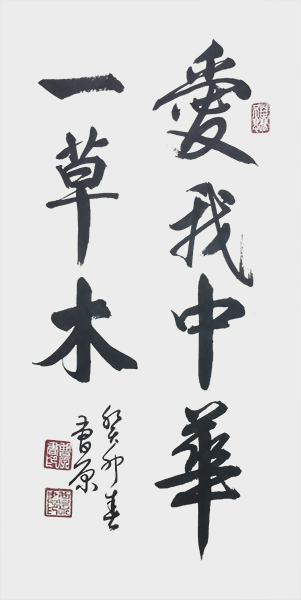 愛我中華
一草木
癸卯春
曹原